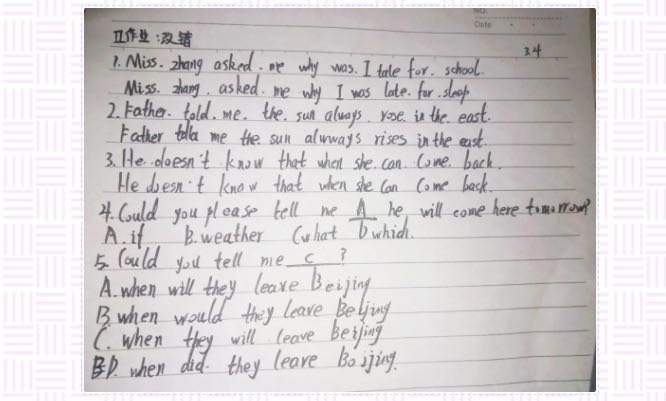 NO.
Date
Π作业:改错
3.4
1. Miss. zhang asked. me why was. I tale for. school.
Miss. zhang. asked. me why I was late. for. sleep
2. Father. told. me. the. sun always. rose. in the. east.
Father tella me the sun alwways rises in the east.
3. He doesn't know that when she. can. Come. back.
He doesn't know that when she can Come back.
4. Could you please tell me A he will come here tomorrow?
A. if B. weather C what D which.
5. Could you tell me C ?
A. when will they leave Beijing
B when would they leave Beijing
C. when they will leave Beijing
D. when did. they leave Boijing.